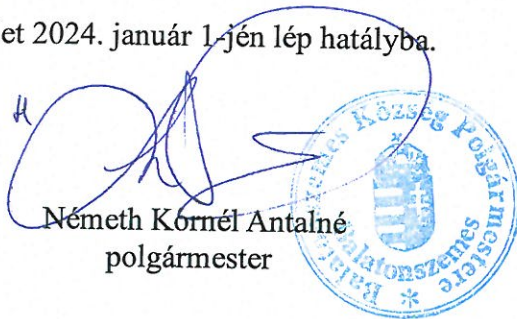 et 2024. január 1-jén lép hatályba.
Németh Kornél Antalné
polgármester
Község Polgármestere
Balatonszemes